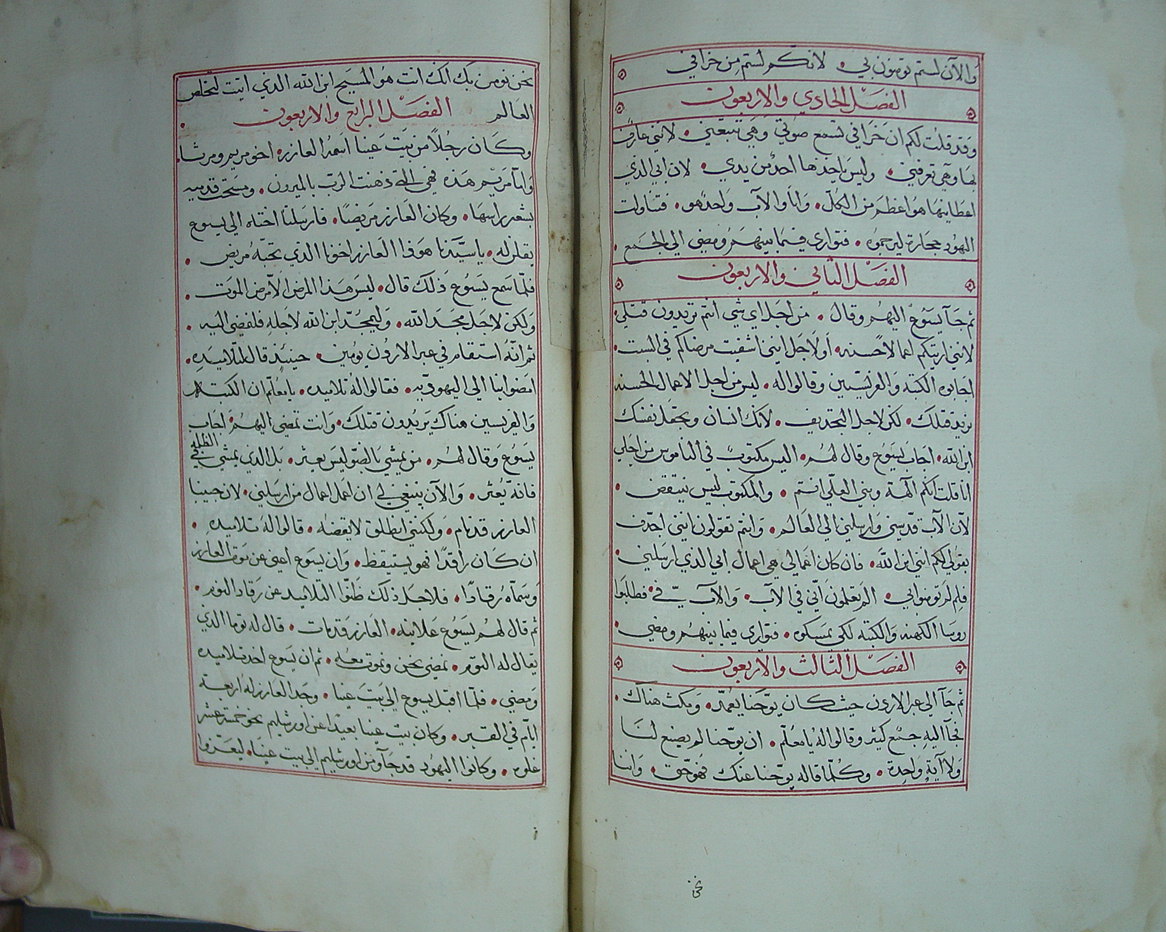 والآن لستم تومنون بي • لانكم لستم من خرافي
الفصل الحادي والاربعون
وقد قلت لكم ان خرافي تسمع صوتي وهي تتبعني • لانني عارف
بها وهي تعرفني • وليس ياخذها احد من يدي • لان ابي الذي
اعطانيها هو اعظم من الكل • وانا والآب واحد هو • فتناولت
اليهود حجارة ليرجموه • فتوارى فيما بينهم ومضى الى الجميع •
الفصل الثاني والاربعون
ثم جآ يسوع اليهم وقال • من اجل اي شي انتم تريدون قتلي
لانني اريتكم اعمالا حسنه • او لاجل انني اشفيت مرضاكم في السبت •
اجابوه الكتبه والفريسين وقالوا له • ليس من اجل الاعمال الحسنه
نريد قتلك • لكن لاجل التجديف • لانك انسان وتجعل نفسك
ابن الله • اجاب يسوع وقال لهم • اليس مكتوب في الناموس من اجلي
انا قلت انكم آلهة وبني العلي انتم • والمكتوب ليس ينتقض •
لان الآب قدسني وارسلني الى العالم • وانتم تقولون انني اجدف
بقولي لكم انني ابن الله • فان كان اعمالي هي اعمال ابي الذي ارسلني •
فلم لم تومنوا بي • الم تعلمون اني في الآب • والآب فيّ • فطلبوا
روسا الكهنه والكتبه لكي يمسكوه • فتوارى فيما بينهم ومضى •
الفصل الثالث والاربعون
ثم جآ الى عبر الاردن حيث كان يوحنا يعمد • ومكث هناك •
فجآ اليه جمع كثير وقالوا له يا معلم • ان يوحنا لم يصنع لنا
ولا آية واحدة • وكلما قاله يوحنا عنك فهو حق • واننا
نحن
نحن نومن بك انك انت هو المسيح ابن الله الذي اتيت لتخلص
العالم الفصل الرابع والاربعون
وكان رجلا من بيت عنيا اسمه العازر • اخو مريم ومرثا •
واما مريم هذه فهي التي دهنت الرب بالميرون • ومسحت قدميه
بشعر راسها • وكان العازر مريضا • فارسلنا اختاه الى يسوع
يقلن له • يا سيدنا هوذا العازر اخونا الذي تحبه مريض •
فلما سمع يسوع ذلك قال • ليس هذا المرض لامرض الموت •
ولكن لاجل مجد الله • وليمجد ابن الله لاجله فلنمضي اليه •
ثم انه استقام في عبر الاردن يومين • حينيذ قال لتلاميذه •
امضوا بنا الى اليهوديه • فقالوا له تلاميذه • يا معلم ان الكتبه
والفريسين هناك يريدون قتلك • وانت تمضي اليهم • اجاب
يسوع وقال لهم • من يمشي بالضو ليس يعثر • بل الذي يمشي في الظلمه
فانه يعثر • والآن ينبغي لي ان اعمل اعمال من ارسلني • لان حبيبنا
العازر قد نام • ولكنني انطلق لايقضه • قالوا له تلاميذه •
ان كان راقدا فهو يستيقظ • وان يسوع اعنى عن موت العازر
وسماه رقادا • فلاجل ذلك ظنوا التلاميذ عن رقاد النوم •
ثم قال لهم يسوع علانيه • العازر قد مات • قال له توما الذي
يقال له التوم • نمضي نحن ونموت معه • ثم ان يسوع اخذ تلاميذه
ومضى • فلما اقبل يسوع الى بيت عنيا • وجد العازر له اربعة
ايام في القبر • وكان بيت عنيا بعيدا عن اورشليم نحو خمسة عشر
غلوه • وكانوا اليهود قد جآو من اورشليم الى بيت عنيا • ليعزوا